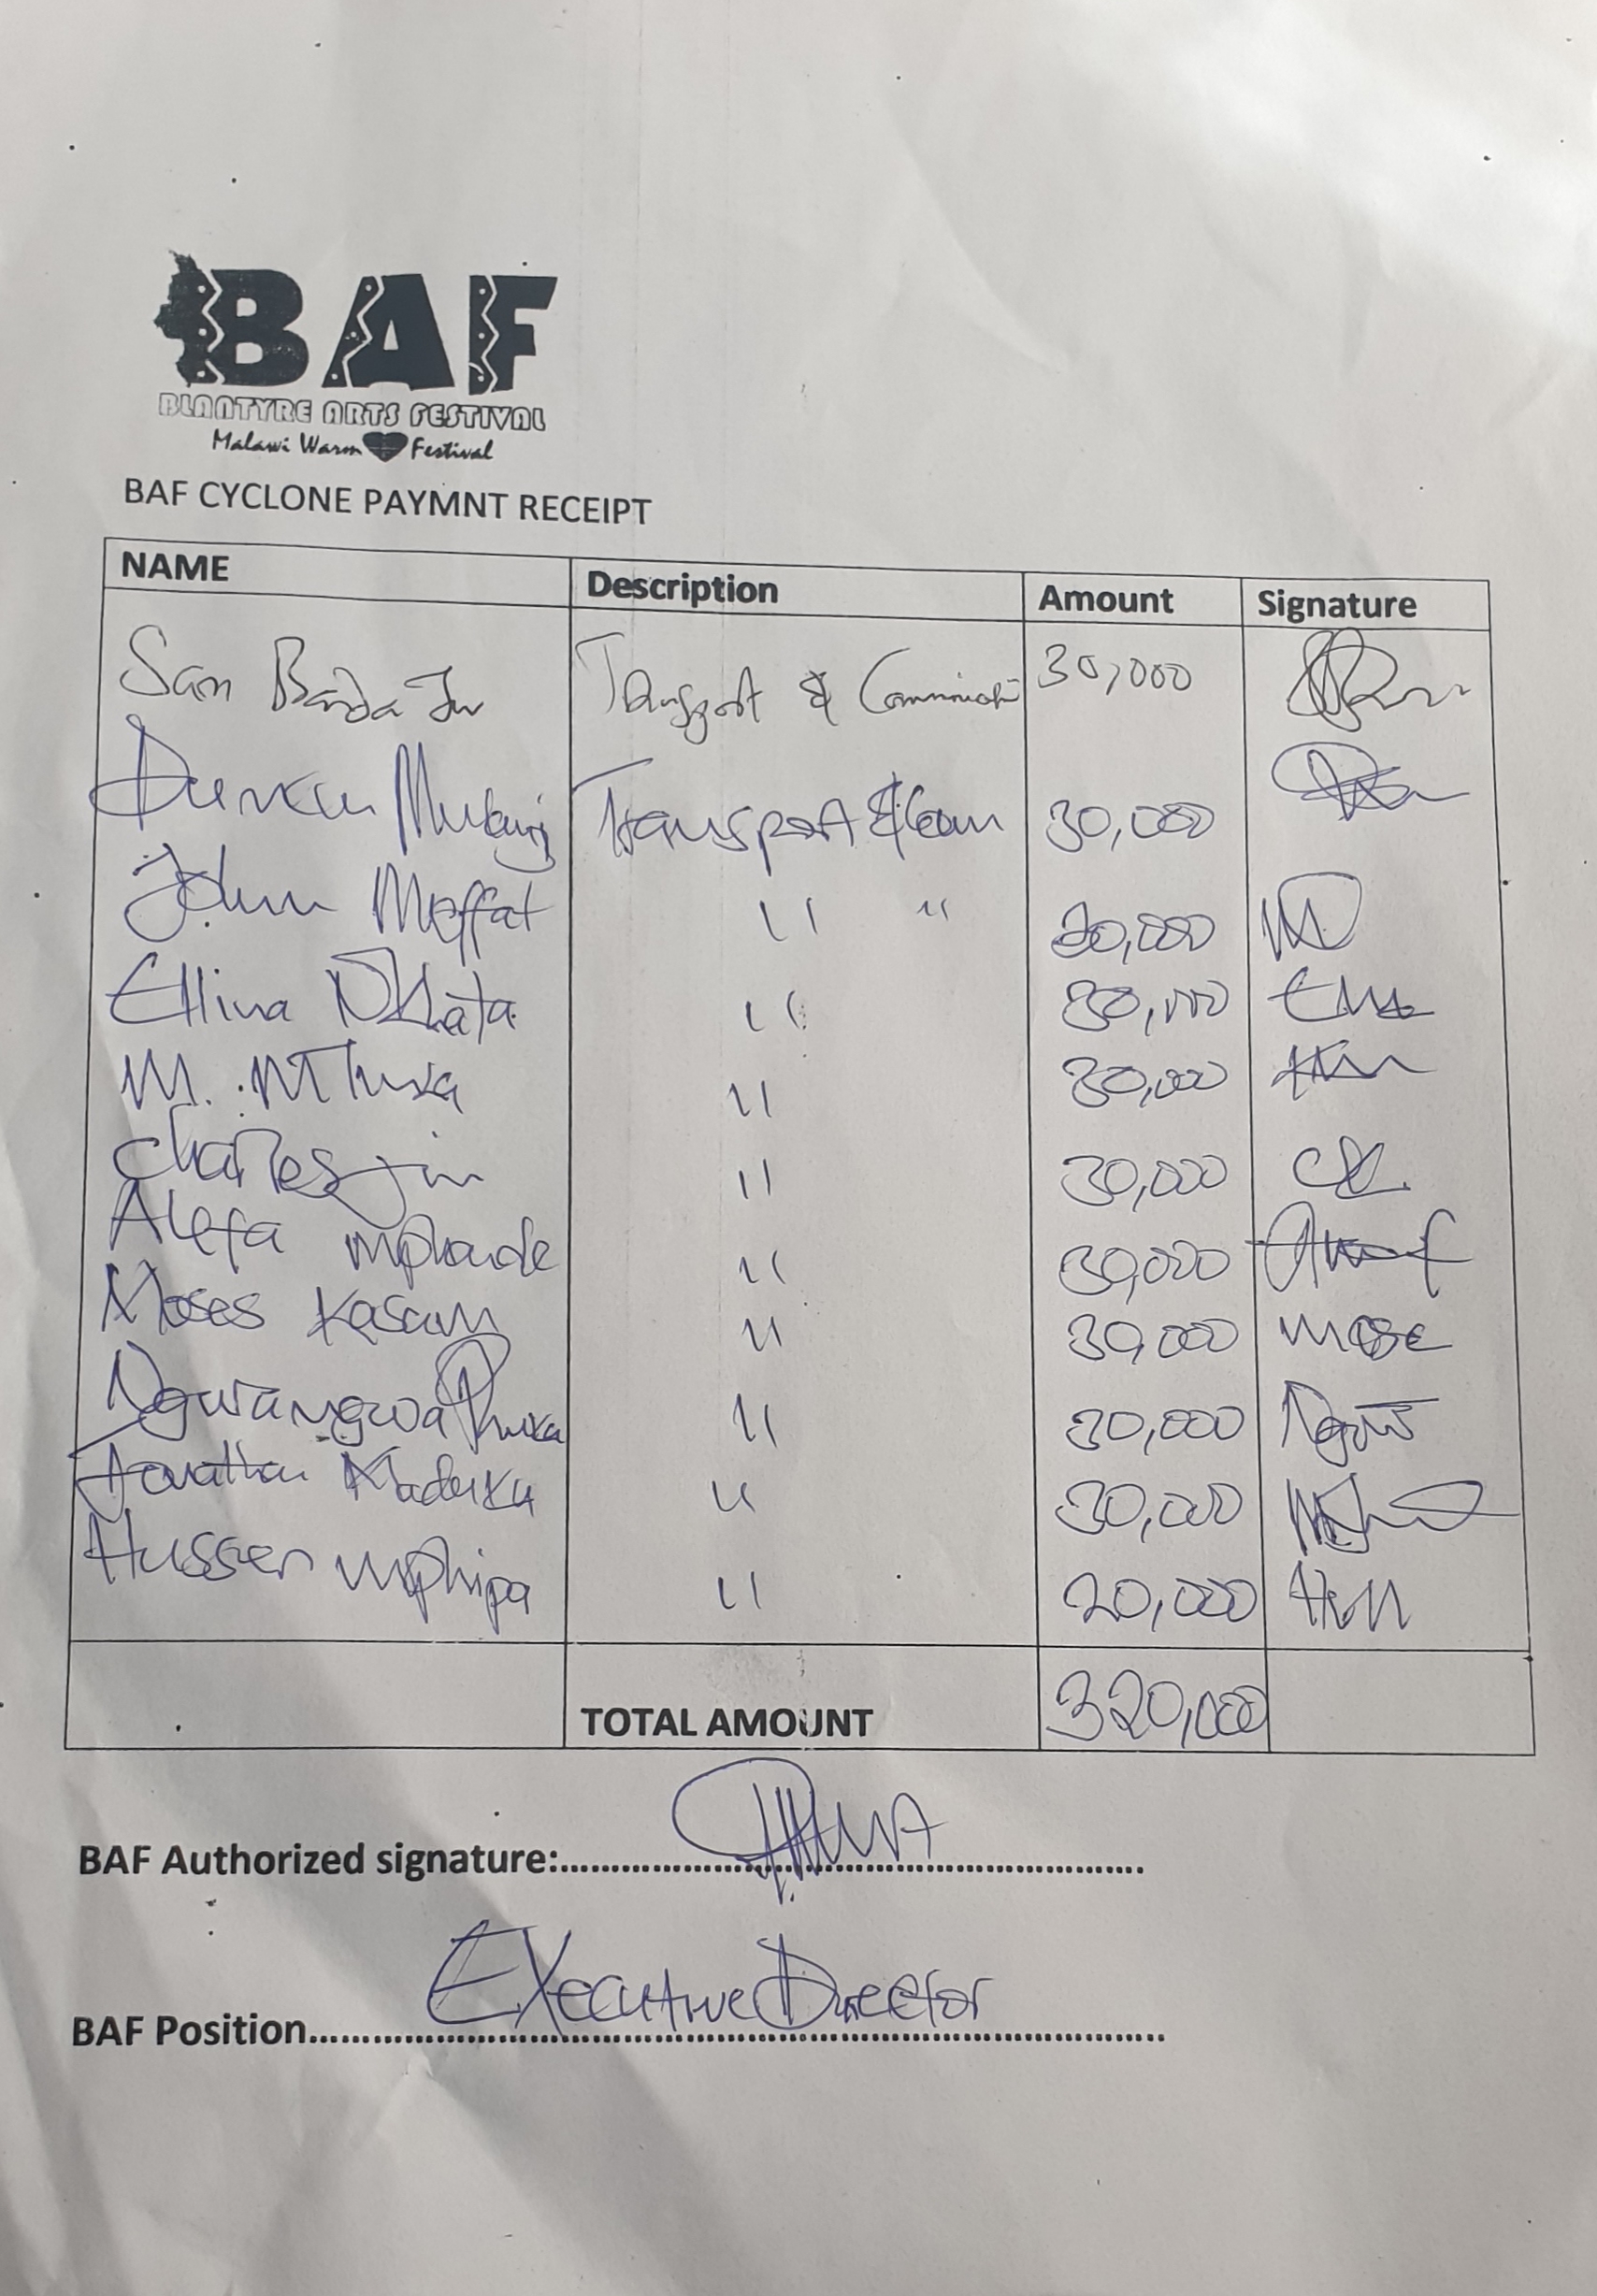 BAF
BLANTYRE ARTS FESTIVAL
Malawi Warm Festival
BAF CYCLONE PAYMNT RECEIPT
NAME Description Amount Signature
Sam Banda Jnr Transport & 30,000
Duncan Transport & Com 30,000
John Moffat " " 30,000
Ellina NKhata " 30,000
M. MThuka " 30,000
Charles " 30,000
Alefa mphande " 30,000
Moses Kasam " 30,000 mose
Ngwangwa Phuka " 30,000
Jonathan Maduka " 30,000
Hussen mphipa " 20,000
TOTAL AMOUNT 320,000
BAF Authorized signature:
BAF Position Executive Director